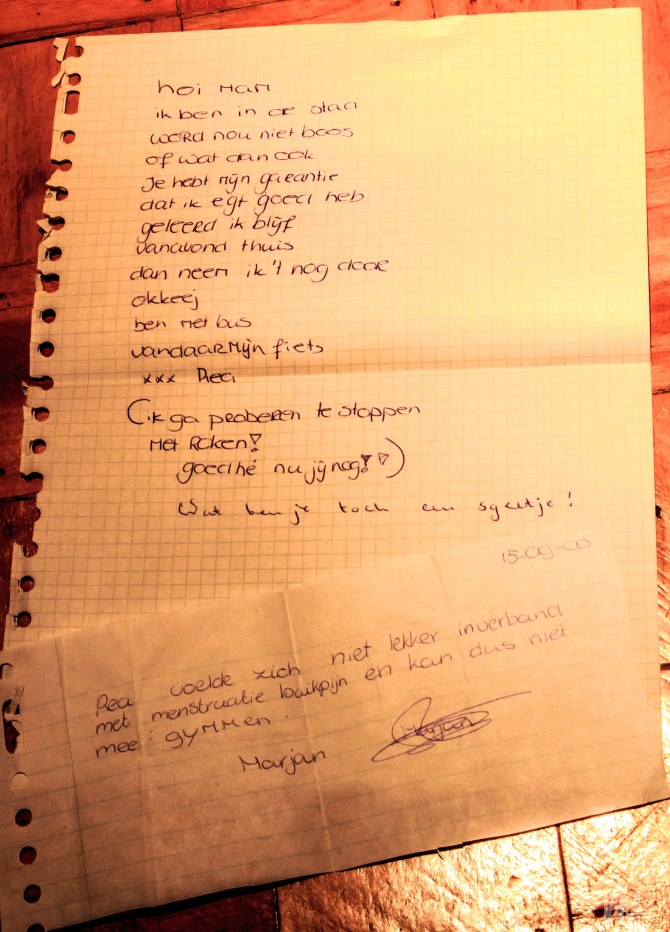 hoi MAM
ik ben in de stad
word nou niet boos
of wat dan ook
Je hebt mijn garantie
dat ik egt goed heb
geleerd ik blijf
vanavond thuis
dan neem ik 't nog door
okkeej
ben met bus
vandaar mijn fiets
xxx Pea
(ik ga proberen te stoppen
met Roken!
goed hé nu jij nog!!)
Wat ben je toch een sgeetje!
15-09-00
Pea voelde zich niet lekker inverband
met menstruatie buikpijn en kan dus niet
mee gymmen.
Marjan
Marjan